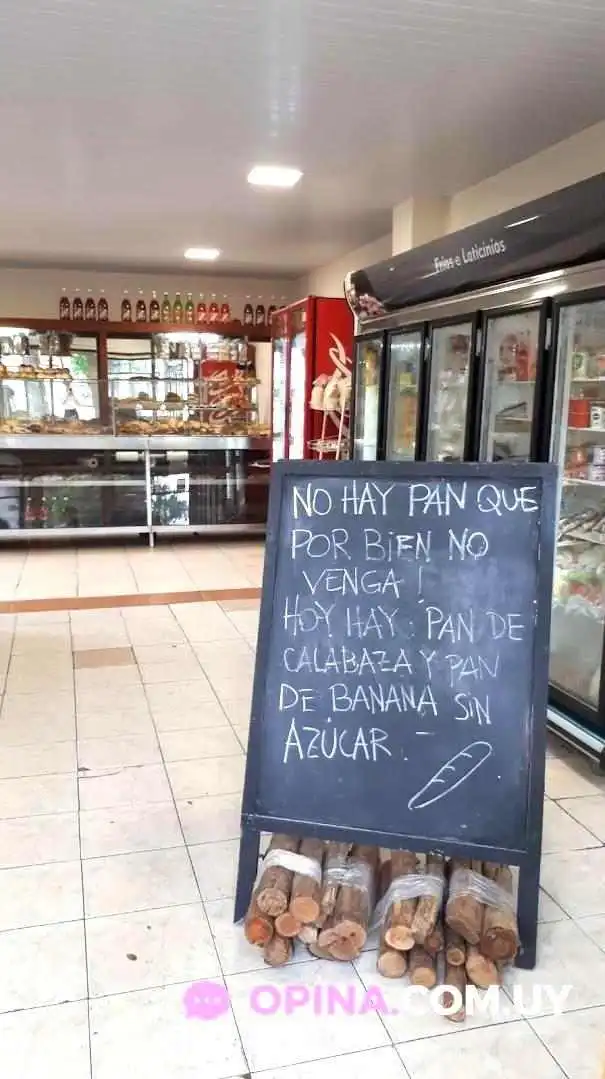 Frios e Laticinios
NO HAY PAN QUE
POR BIEN NO
VENGA!
HOY HAY: PAN DE
CALABAZA Y PAN
DE BANANA SIN
AZÚCAR.-
OPINA.COM.UY